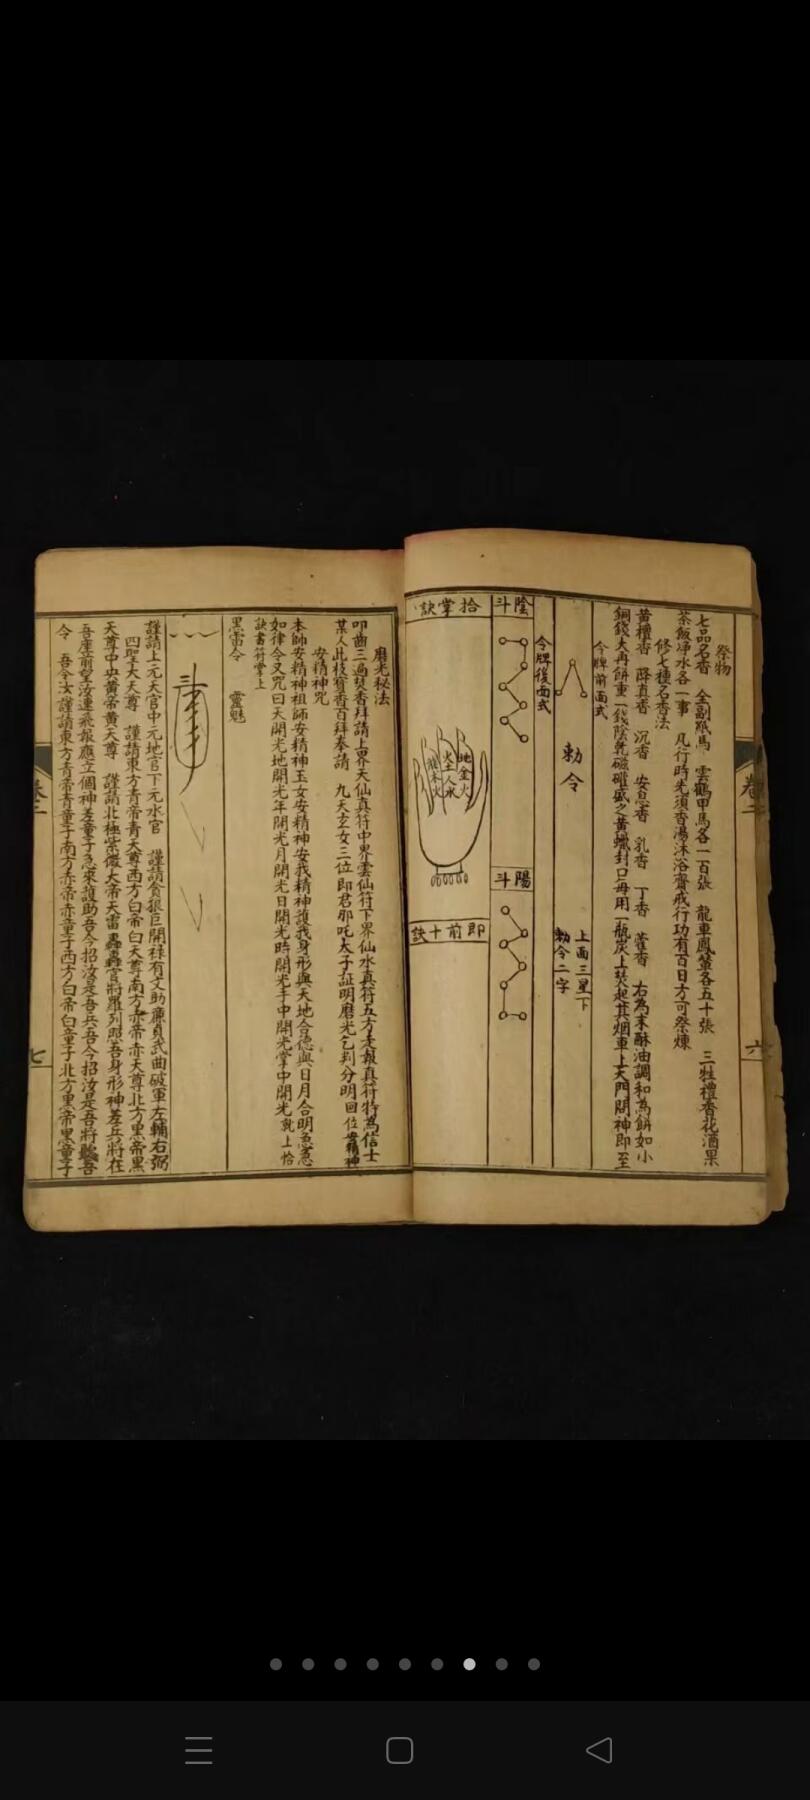 祭物
七品名香　全副紙馬　雲鶴甲馬各一百張　龍車鳳輦各五十張　三牲禮香花酒果
茶飯凈水各一事　凡行時先須香湯沐浴齋戒行功有百日方可祭煉
修七種名香法
黄檀香　降真香　沉香　安息香　乳香　丁香　藿香　右為末酥油調和為餅如小
銅錢大再餅重一錢陰乾磁罐盛之黄蠟封口每用一瓶炭上焚起其烟軍上天門間神即至
令牌前面式
勅令
上面三星下
勅令二字
令牌後面式
陰斗
陽斗
拾掌訣
地金火
火土人水
木火
即前十訣
卷二
六
磨光秘法
叩齒三遍焚香拜請上界天仙真符中界雲仙符下界仙水真符五方走報真符特為信士
某人此枝寶香百拜奉請　九天玄女三位即君那吒太子証明磨光乞判分明回位安精神
安精神咒
本師安精神祖師安精神玉女安精神安我精神護我身形與天地合德與日月合明急急
如律令又咒曰天開光地開光年開光月開光日開光時開光手中開光掌中開光就上恰
訣書符掌上
黑雷令　靈魅
謹請上元天官中元地官下元水官　謹請貪狼巨開祿有文助廉貞武曲破軍左輔右弼
四聖大天尊　謹請東方青帝青天尊西方白帝白天尊南方赤帝赤天尊北方黑帝黑
天尊中央黄帝黄天尊　謹請北極紫微大帝天雷官將羅列照吾身形神差兵將在
吾座前望汝連飛報應立個神差童子急來護助吾今招汝是吾兵吾今招汝是吾將聽吾
令　吾令汝謹請東方青帝青童子南方赤帝赤童子西方白帝白童子北方黑帝黑童子
七